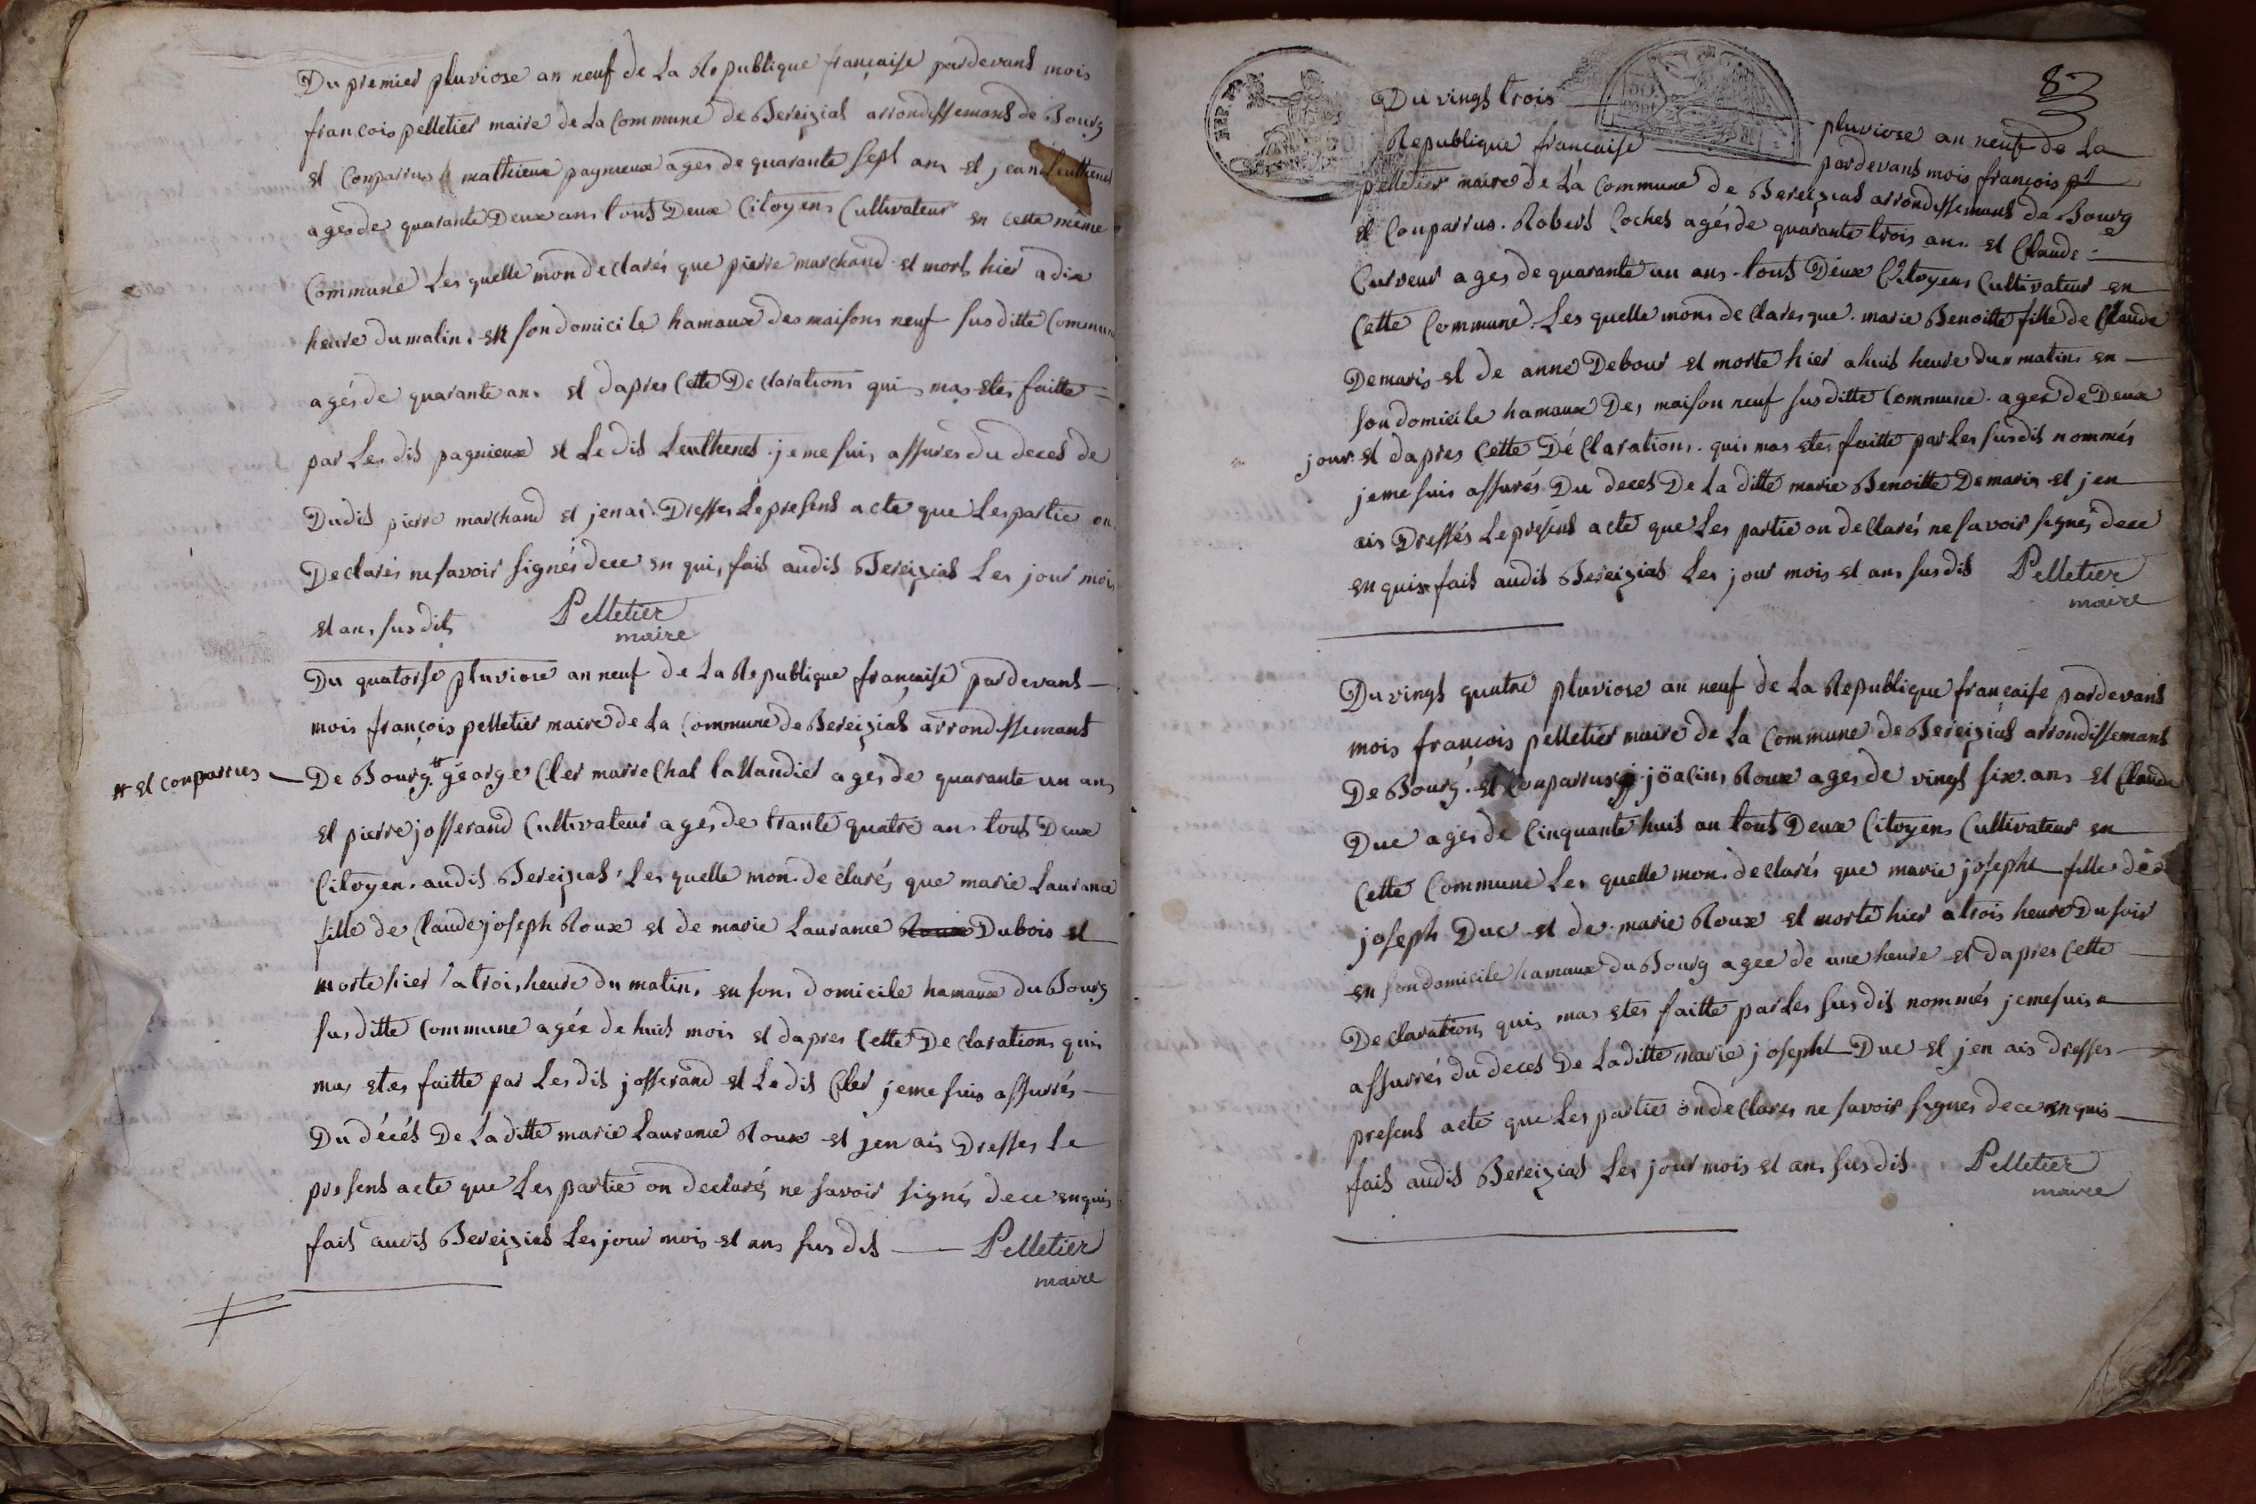 Du premier pluviose an neuf de La Republique française pardevant mois
françois pelletier maire de La Commune de Bereiziat arrondissemant de Bourg
et Conparrus mathieux pagnieux ages de quarante sept ans et jean Leuthenet
ages de quarante Deux ans tout Deux Citoyens Cultivateur en Cette même
Commune Les quelle mon declarés que pierre marchand et mort hier a dix
heure du matin. en son domicile hamaux des maisons neuf sus ditte Commune
agés de quarante ans et dapres Cette Declarations quis mas etes faitte
par Les dit pagnieux et Le dit Leuthenet je me suis assures du deces de
Dudit pierre marchand et jen ai Dresses Le present acte que Les partie on
Declarés ne savoir signés dece en qui, fait audit Bereiziat Les jour mois
et ans susdits Pelletier
maire
Du quatorse pluviose an neuf de La Republique française pardevant
mois françois pelletier maire de La Commune de Bereiziat arrondissemant
# et conparrues
De Bourg # george Cler marrechal tallandier ages de quarante un ans
et pierre josserand Cultivateur agés de trante quatre ans tout Deux
Citoyens audit Bereiziat Les quelle mon declarés que marie Laurance
fille de Claude joseph Roux et de marie Laurance Roux Dubois et
morte hier a trois heure du matins en sons domicile hamaux du Bourg
susditte Commune agée de huit mois et dapres Cette Declarations quis
mas etes faitte par Les dit josserand et Le dit Cler je me suis assurrés
Du décés De La ditte marie Laurance Roux et jen ais Dresses Le
present acte que Les partie on declarés ne savoir signés dece enquis
fait audit Bereiziat Les jour mois et ans susdit Pelletier
maire
8
Du vingt trois pluviose an neuf de La
Republique française pardevant mois françois
pelletier maire de La Commune de Bereiziat arrondissemant de Bourg
et Conparrus. Robert Cochet agés de quarante trois ans et Claude
Curveur ages de quarante un ans tout Deux Citoyens Cultivateur en
Cette Commune. Les quelle mons declares que marie Benoitte fille de Claude
Demaris et de anne Debour et morte hier a huit heure du matins en
son domicile hamaux Des maison neuf susditte Commune agee de Deux
jour et dapres Cette Déclarations quis mas etes faitte par Les susdit nommés
je me suis assurés Du deces De La ditte marie Benoitte Demaris et jen
ais Dressés Le présent acte que Les partie on declarés ne savoir signés dece
en quis fait audit Bereiziat Les jour mois et ans susdit Pelletier
maire
Du vingt quatre pluviose an neuf de La Republique française pardevant
mois françois pelletier maire de La Commune de Bereiziat arrondissemant
De Bourg. et Conparrus jöacins Roux ages de vingt six ans et Claude
Duc agés de Cinquante huit an tout Deux Citoyens Cultivateur en
Cette Commune Les quelle mons declarés que marie josepht fille de
joseph Duc et de marie Roux et morte hier a trois heure Du soir
en son domicile hamaux du Bourg agee de une heure et dapres Cette
Declarations quis mas etes faitte par Les susdit nommés je me suis
assurrés du deces De La ditte marie josepht Duc et jen ais dresses
present acte que Les partie on déclares ne savoir signes dece enquis
fait audit Bereiziat Les jour mois et ans susdit Pelletier
maire